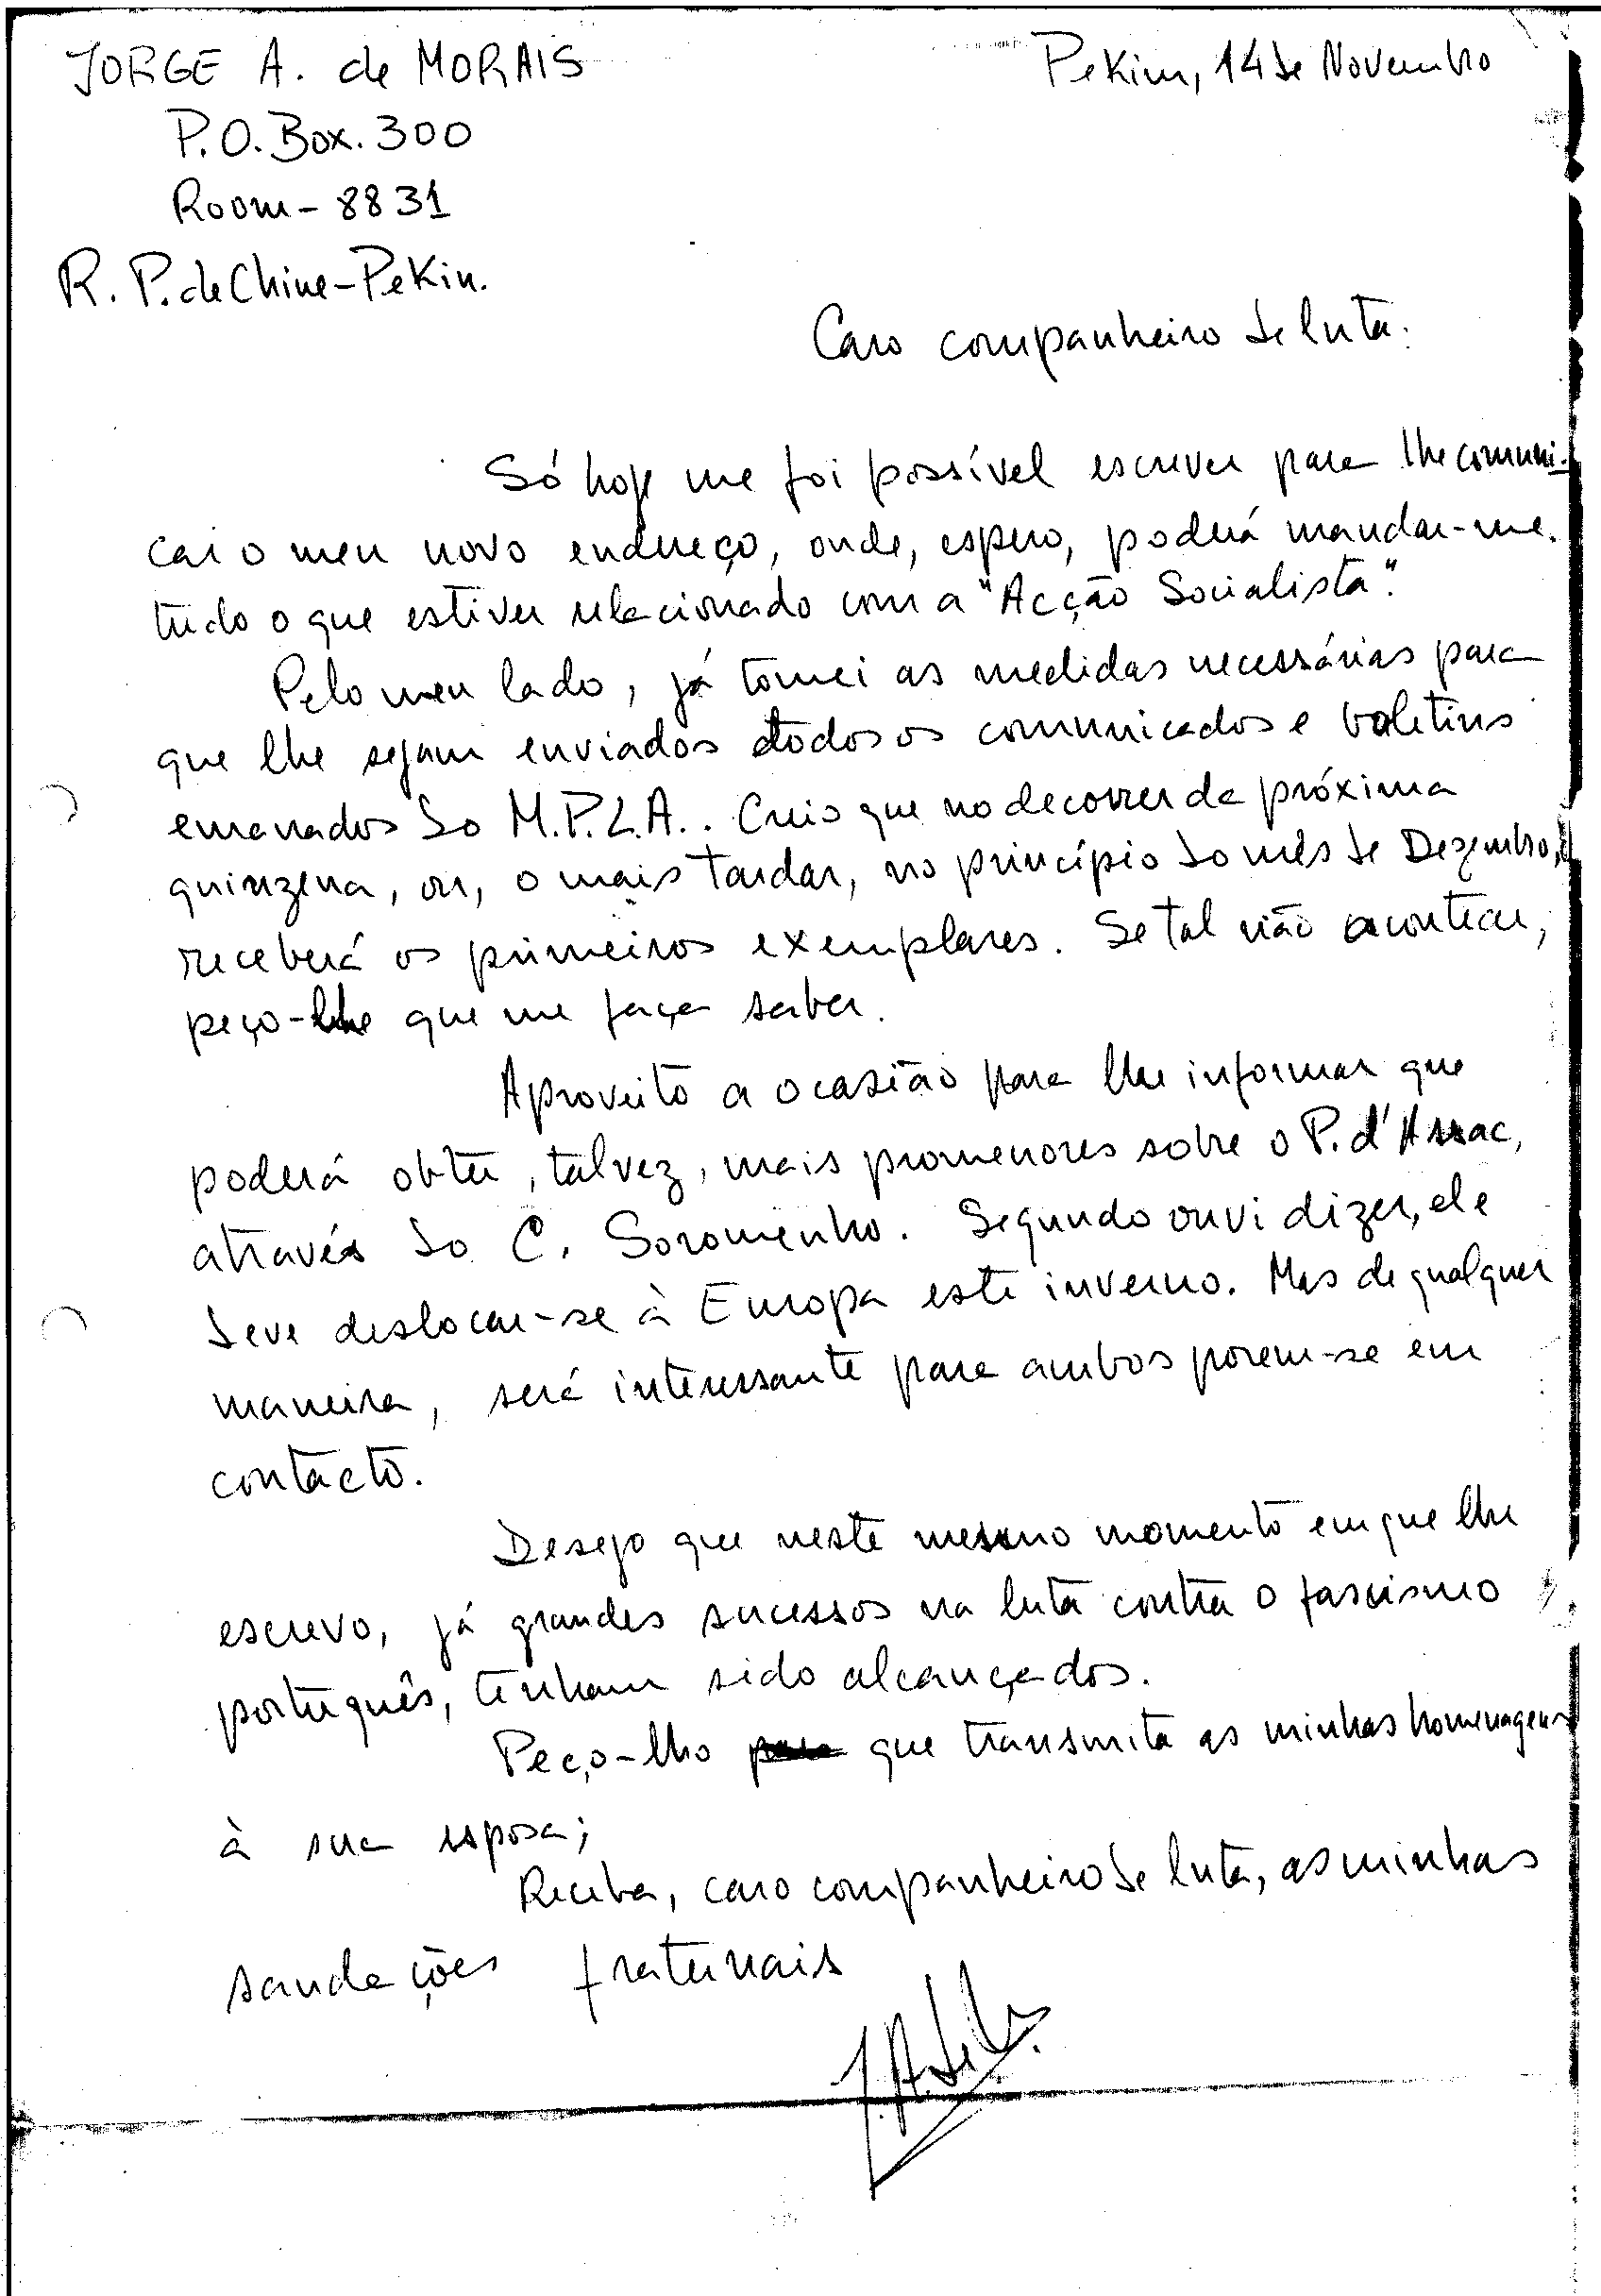 JORGE A. de MORAIS
Pekim, 14 de Novembro
P.O. Box. 300
Room - 8831
R. P. de Chine - Pekin.
Caro companheiro de luta:
Só hoje me foi possível escrever para lhe comuni-
car o meu novo endereço, onde, espero, poderá mandar-me
tudo o que estiver relacionado com a "Acção Socialista".
Pelo meu lado, já tomei as medidas necessárias para
que lhe sejam enviados todos os comunicados e boletins
emanados do M.P.L.A.. Creio que no decorrer da próxima
quinzena, ou, o mais tardar, no princípio do mês de Dezembro,
receberá os primeiros exemplares. Se tal não acontecer,
peço-lhe que me faça saber.
Aproveito a ocasião para lhe informar que
poderá obter, talvez, mais promenores sobre o P. d'Assac,
através do C. Soromenho. Segundo ouvi dizer, ele
deve deslocar-se à Europa este inverno. Mas de qualquer
maneira, será interessante para ambos porem-se em
contacto.
Desejo que neste mesmo momento em que lhe
escrevo, já grandes sucessos na luta contra o fascismo
português, tenham sido alcançados.
Peço-lho que transmita as minhas homenagens
à sua esposa;
Receba, caro companheiro de luta, as minhas
saudações fraternais